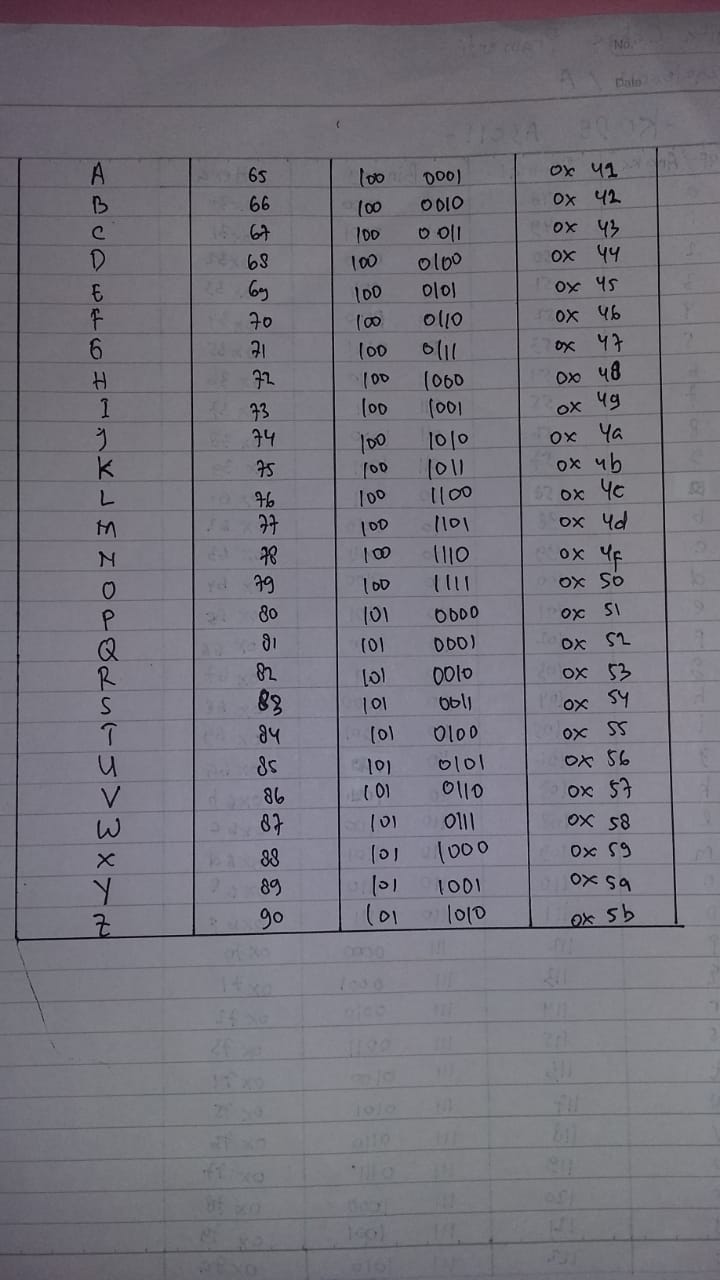 No.
Date
A 65 100 0001 0x 41
B 66 100 0010 0x 42
C 67 100 0011 0x 43
D 68 100 0100 0x 44
E 69 100 0101 0x 45
F 70 100 0110 0x 46
G 71 100 0111 0x 47
H 72 100 1000 0x 48
I 73 100 1001 0x 49
J 74 100 1010 0x 4a
K 75 100 1011 0x 4b
L 76 100 1100 0x 4c
M 77 100 1101 0x 4d
N 78 100 1110 0x 4f
O 79 100 1111 0x 50
P 80 101 0000 0x 51
Q 81 101 0001 0x 52
R 82 101 0010 0x 53
S 83 101 0011 0x 54
T 84 101 0100 0x 55
U 85 101 0101 0x 56
V 86 101 0110 0x 57
W 87 101 0111 0x 58
X 88 101 1000 0x 59
Y 89 101 1001 0x 5a
Z 90 101 1010 0x 5b